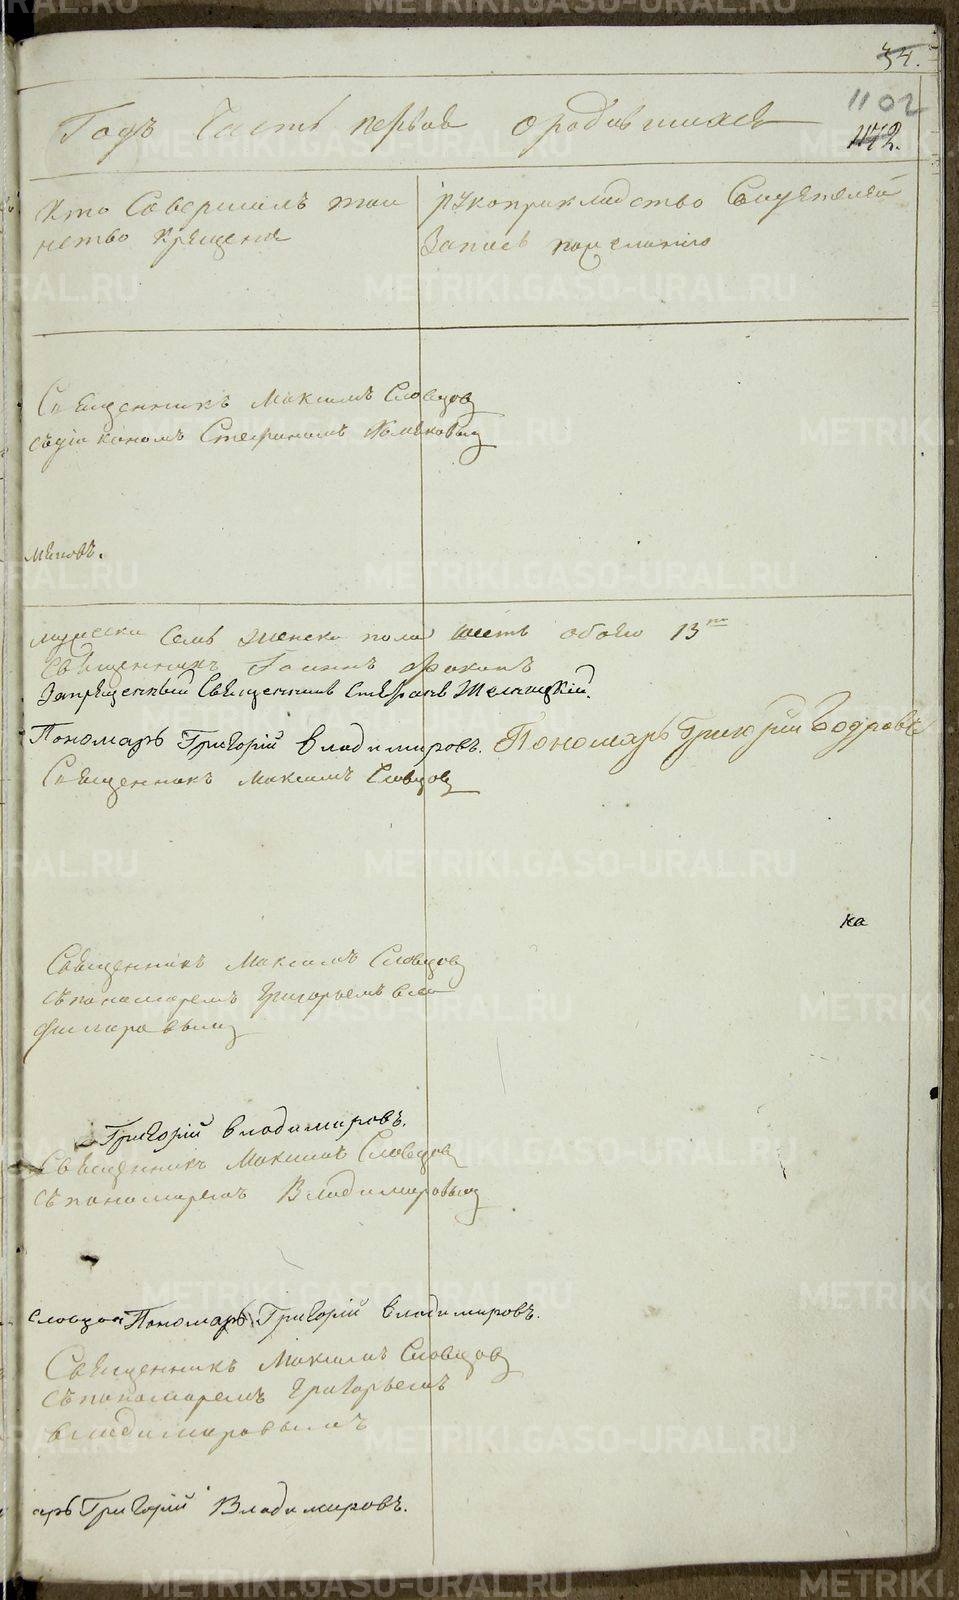 34.
1102
1172.
Годъ Часть первая о родившихся
Кто Совершалъ таи
нство крещения
рукоприкладство Свидетелей
Запись пожеланию
Священникъ Максимъ Словцов
съ диакономъ Стефаномъ
меновъ.
мужеска семь женска пола шесть обоего 13
Священникъ Иоаннъ
Запрещенный Священникъ Стефанъ
Пономарь Григорій Владимировъ. Пономарь Григорій
Священникъ Максимъ Словцов
на
Священникъ Максимъ Словцов
съ пономаремъ Григорьемъ Вла
димировым
Григорій Владимировъ.
Священникъ Максимъ Словцов
съ пономаремъ Владимировым
Словцов Пономарь Григорій Владимировъ.
Священникъ Максимъ Словцов
съ пономаремъ Григорьемъ
Владимировымъ
арь Григорій Владимировъ.
METRIKI.GASO-URAL.RU